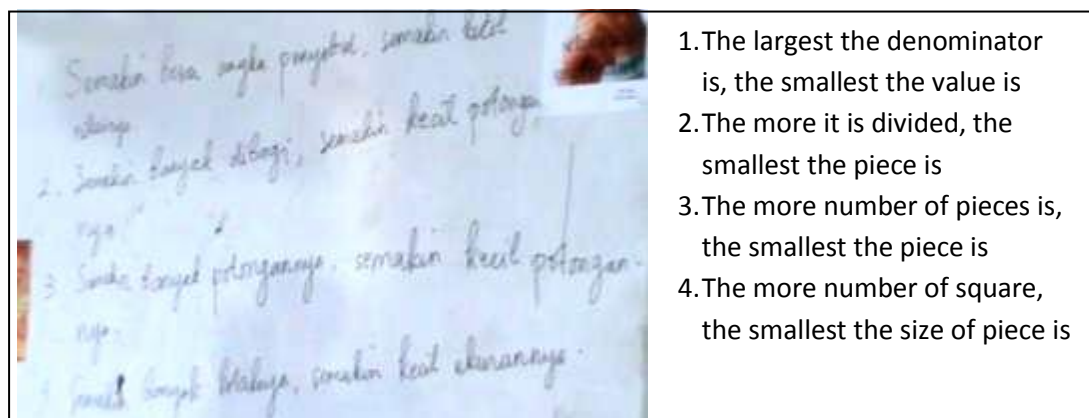 Semakin besar angka penyebut, semakin kecil
nilainya
2. Semakin banyak dibagi, semakin kecil potongan
nya
3. Semakin banyak potongannya, semakin kecil potongan-
nya.
Semakin banyak kotaknya, semakin kecil ukurannya.
1.The largest the denominator
is, the smallest the value is
2.The more it is divided, the
smallest the piece is
3.The more number of pieces is,
the smallest the piece is
4.The more number of square,
the smallest the size of piece is